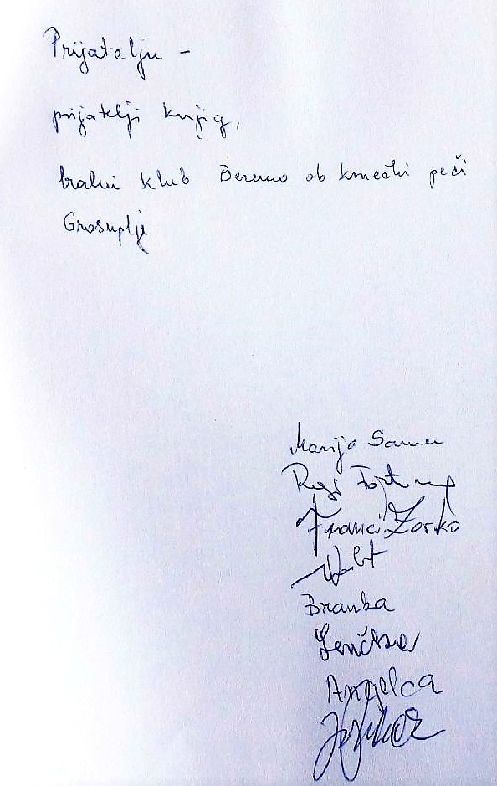 Prijatelju -
prijatelji knjig,
bralni klub Beremo ob kmečki peči
Grosuplje
Marija Samec
Franci Zorko
Branka
Lenčka
Angelca